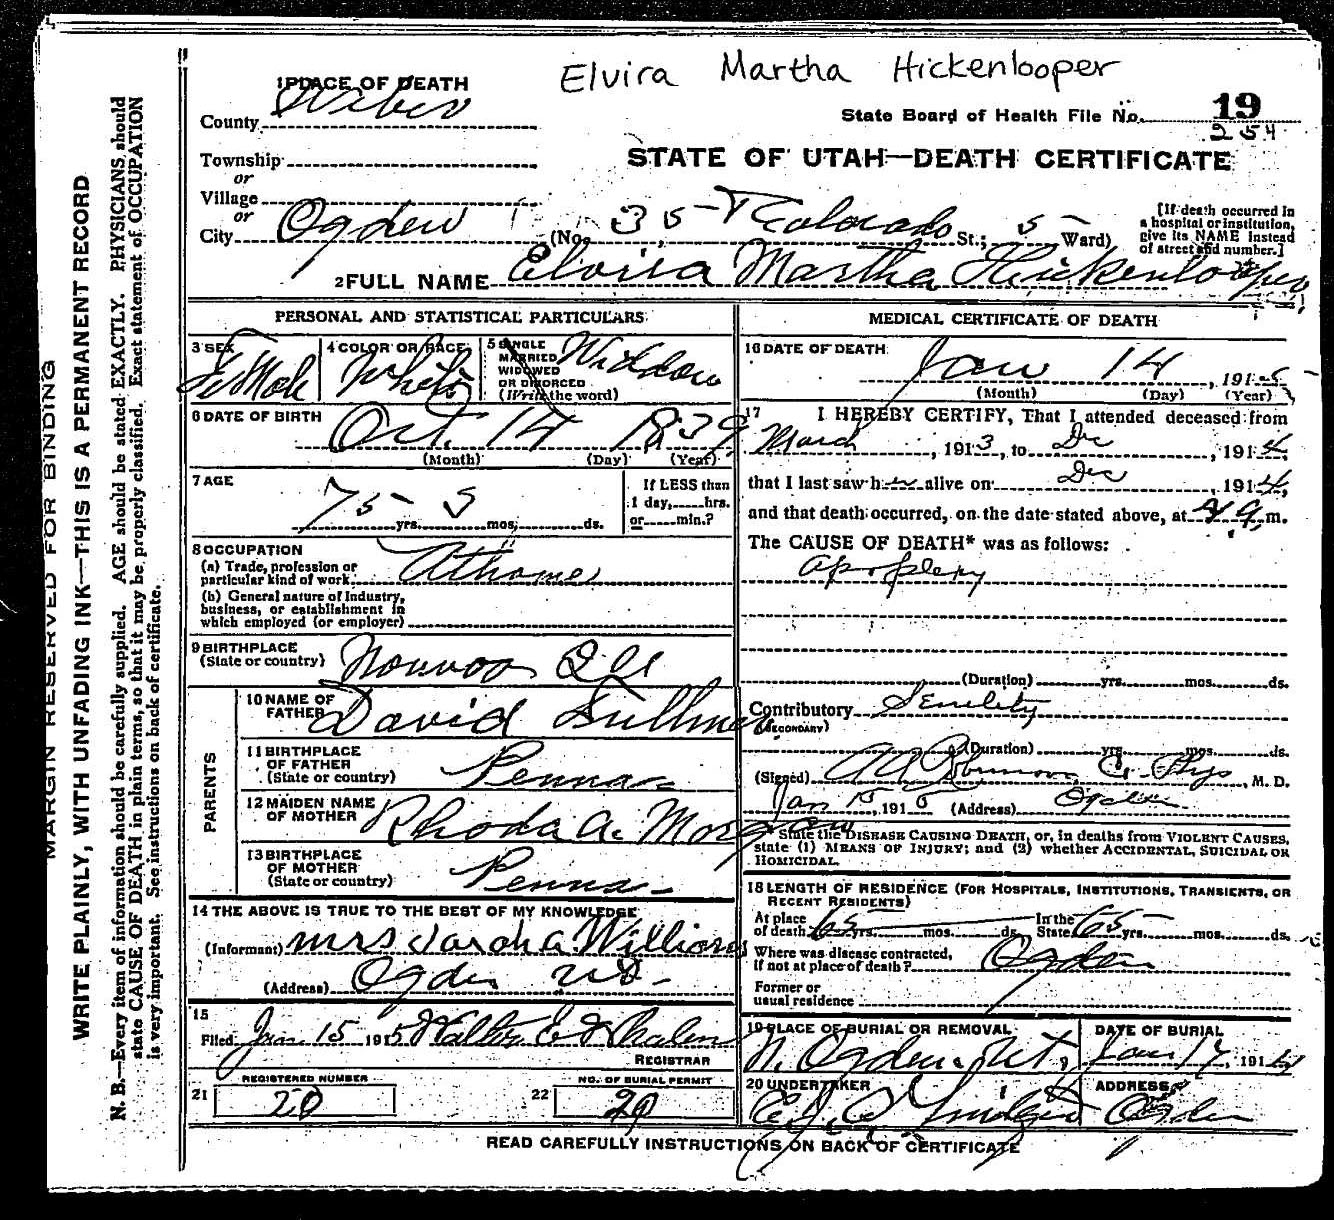 Elvira Martha Hickenlooper
1 PLACE OF DEATH
County Weber
State Board of Health File No. 19
254
Township
or
STATE OF UTAH—DEATH CERTIFICATE
Village
or
City Ogden (No. 35 Colorado St.; 5 Ward)
[If death occurred in
a hospital or institution,
give its NAME instead
of street and number.]
2 FULL NAME Elvira Martha Hickenlooper
PERSONAL AND STATISTICAL PARTICULARS
3 SEX Female
4 COLOR OR RACE White
5 SINGLE
MARRIED
WIDOWED
OR DIVORCED
(Write the word)
Widdow
6 DATE OF BIRTH
Oct. 14 1839
(Month) (Day) (Year)
7 AGE
75 yrs. mos. ds.
If LESS than
1 day, hrs.
or min.?
8 OCCUPATION
(a) Trade, profession or
particular kind of work At home
(b) General nature of Industry,
business, or establishment in
which employed (or employer)
9 BIRTHPLACE
(State or country) Nouvoo Ill
PARENTS
10 NAME OF
FATHER David Fullmer
11 BIRTHPLACE
OF FATHER
(State or country) Penna
12 MAIDEN NAME
OF MOTHER Rhoda A. Morgan
13 BIRTHPLACE
OF MOTHER
(State or country) Penna
14 THE ABOVE IS TRUE TO THE BEST OF MY KNOWLEDGE
(Informant) Mrs Williams
(Address) Ogden Ut
15
Filed Jan 15 1915
REGISTRAR
21 REGISTERED NUMBER 20
22 NO. OF BURIAL PERMIT 20
MEDICAL CERTIFICATE OF DEATH
16 DATE OF DEATH
Jan 14, 1915
(Month) (Day) (Year)
17 I HEREBY CERTIFY, That I attended deceased from
March, 1913, to Dec, 1914,
that I last saw her alive on Dec, 1914,
and that death occurred, on the date stated above, at m.
The CAUSE OF DEATH* was as follows:
Apoplexy
(Duration) yrs. mos. ds.
Contributory Senelity
(SECONDARY)
(Duration) yrs. mos. ds.
(Signed) Phys, M. D.
Jan 15, 1915 (Address) Ogden
* State the DISEASE CAUSING DEATH, or, in deaths from VIOLENT CAUSES,
state (1) MEANS OF INJURY; and (2) whether ACCIDENTAL, SUICIDAL OR
HOMICIDAL.
18 LENGTH OF RESIDENCE (FOR HOSPITALS, INSTITUTIONS, TRANSIENTS, OR
RECENT RESIDENTS)
At place
of death 65 yrs. mos. ds.
In the
State 65 yrs. mos. ds.
Where was disease contracted,
if not at place of death? Ogden
Former or
usual residence
19 PLACE OF BURIAL OR REMOVAL
N. Ogden, Ut,
DATE OF BURIAL
Jan 17, 191
20 UNDERTAKER
ADDRESS
Ogden
READ CAREFULLY INSTRUCTIONS ON BACK OF CERTIFICATE
MARGIN RESERVED FOR BINDING
WRITE PLAINLY, WITH UNFADING INK—THIS IS A PERMANENT RECORD
N. B.—Every item of information should be carefully supplied. AGE should be stated EXACTLY. PHYSICIANS should
state CAUSE OF DEATH in plain terms, so that it may be properly classified. Exact statement of OCCUPATION
is very important. See instructions on back of certificate.